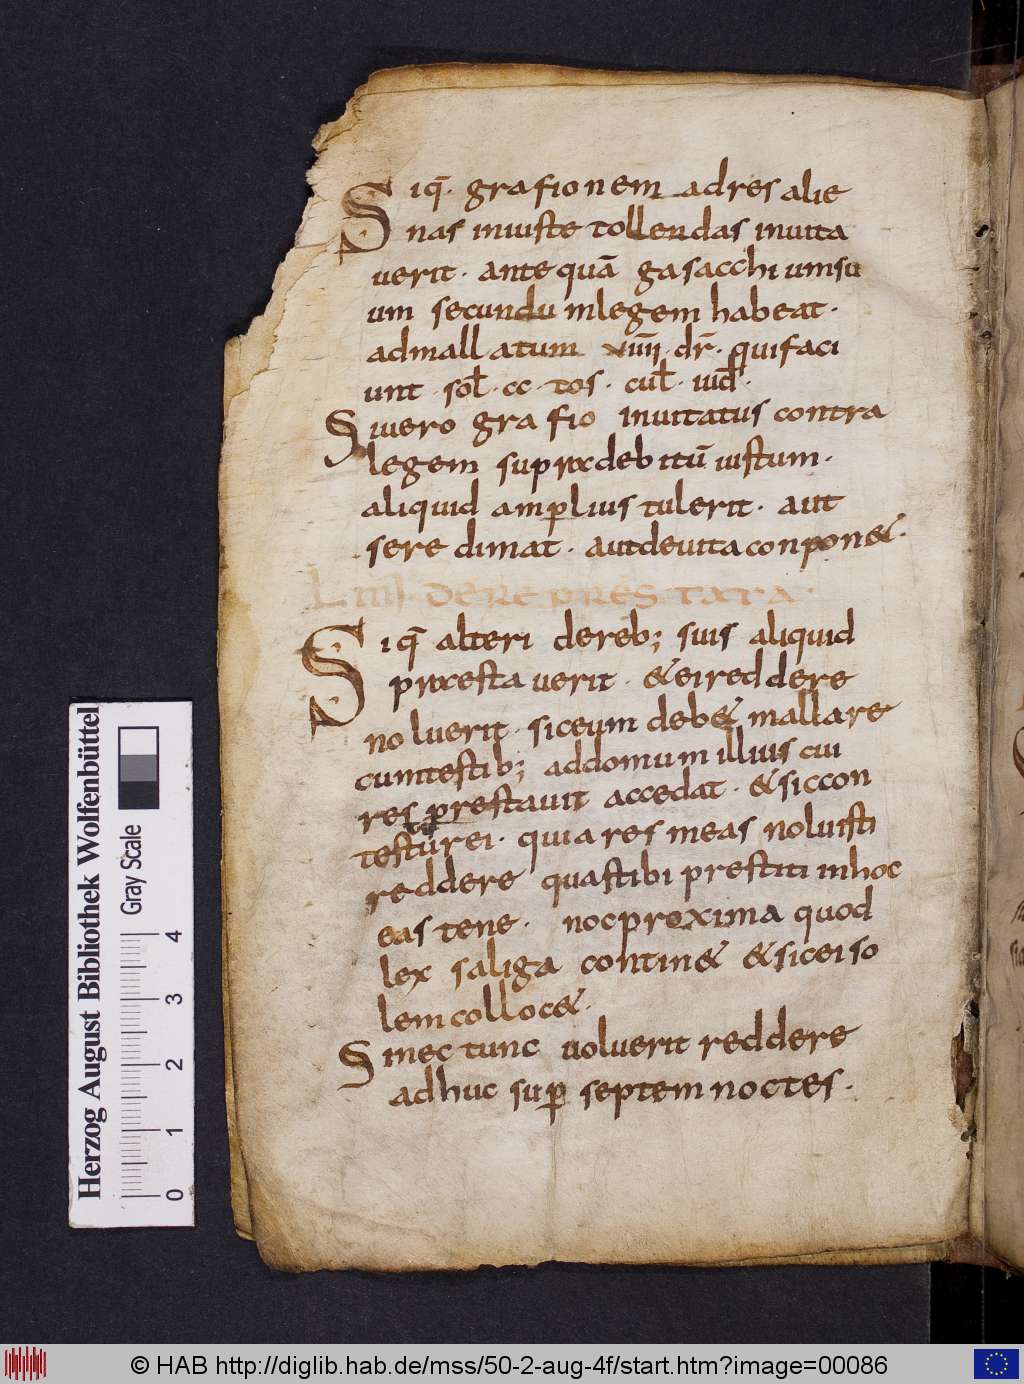 Siq̄· grafionem adres alie
nas iniuste tollendas inuita
uerit· antequā gasacchiumsu
um secundu mlegem habeat·
admallatum xuıııı· dr̄· quifaci
unt· sol̄· cc· tos· cul̄· iud̄·
Siuero grafio inuitatus contra
legem suproxdebitū iustum·
aliquid amplius tulerit· aut
seredimat· autdeuita conpon&·
LIIII DE RE PRESTATA·
Siq̄ alteri dereb; suis aliquid
praestauerit· &eireddere
noluerit· siceum deb& mallare
cumtestib; addomum illius cui
res prestauit accedat· &siccon
testūrei· quia res meas noluisti
reddere quastibi prestiti inhoc
eas tene· nocproxima quod
lex saliga contin& &siceiso
lemcolloc&·
Sinec tunc uoluerit reddere
adhuc sup septem noctes·
Herzog August Bibliothek Wolfenbüttel
Gray Scale
0 1 2 3 4
© HAB http://diglib.hab.de/mss/50-2-aug-4f/start.htm?image=00086